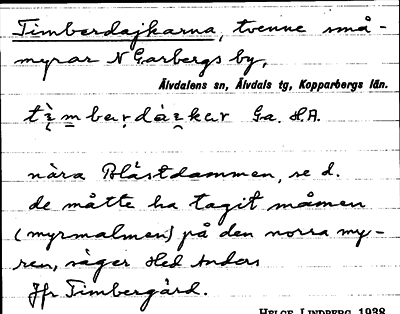 Timberdajkarna, tvenne små-
myrar N Garbergs by,
Älvdalens sn, Älvdals tg, Kopparbergs län.
Ga. HA.
nära Blåstdammen, se d.
de måtte ha tagit måmen
(myrmalmen) på den norra my-
ren, säger Hed Anders
Jfr Timbergård.
HELGE LINDBERG 1938